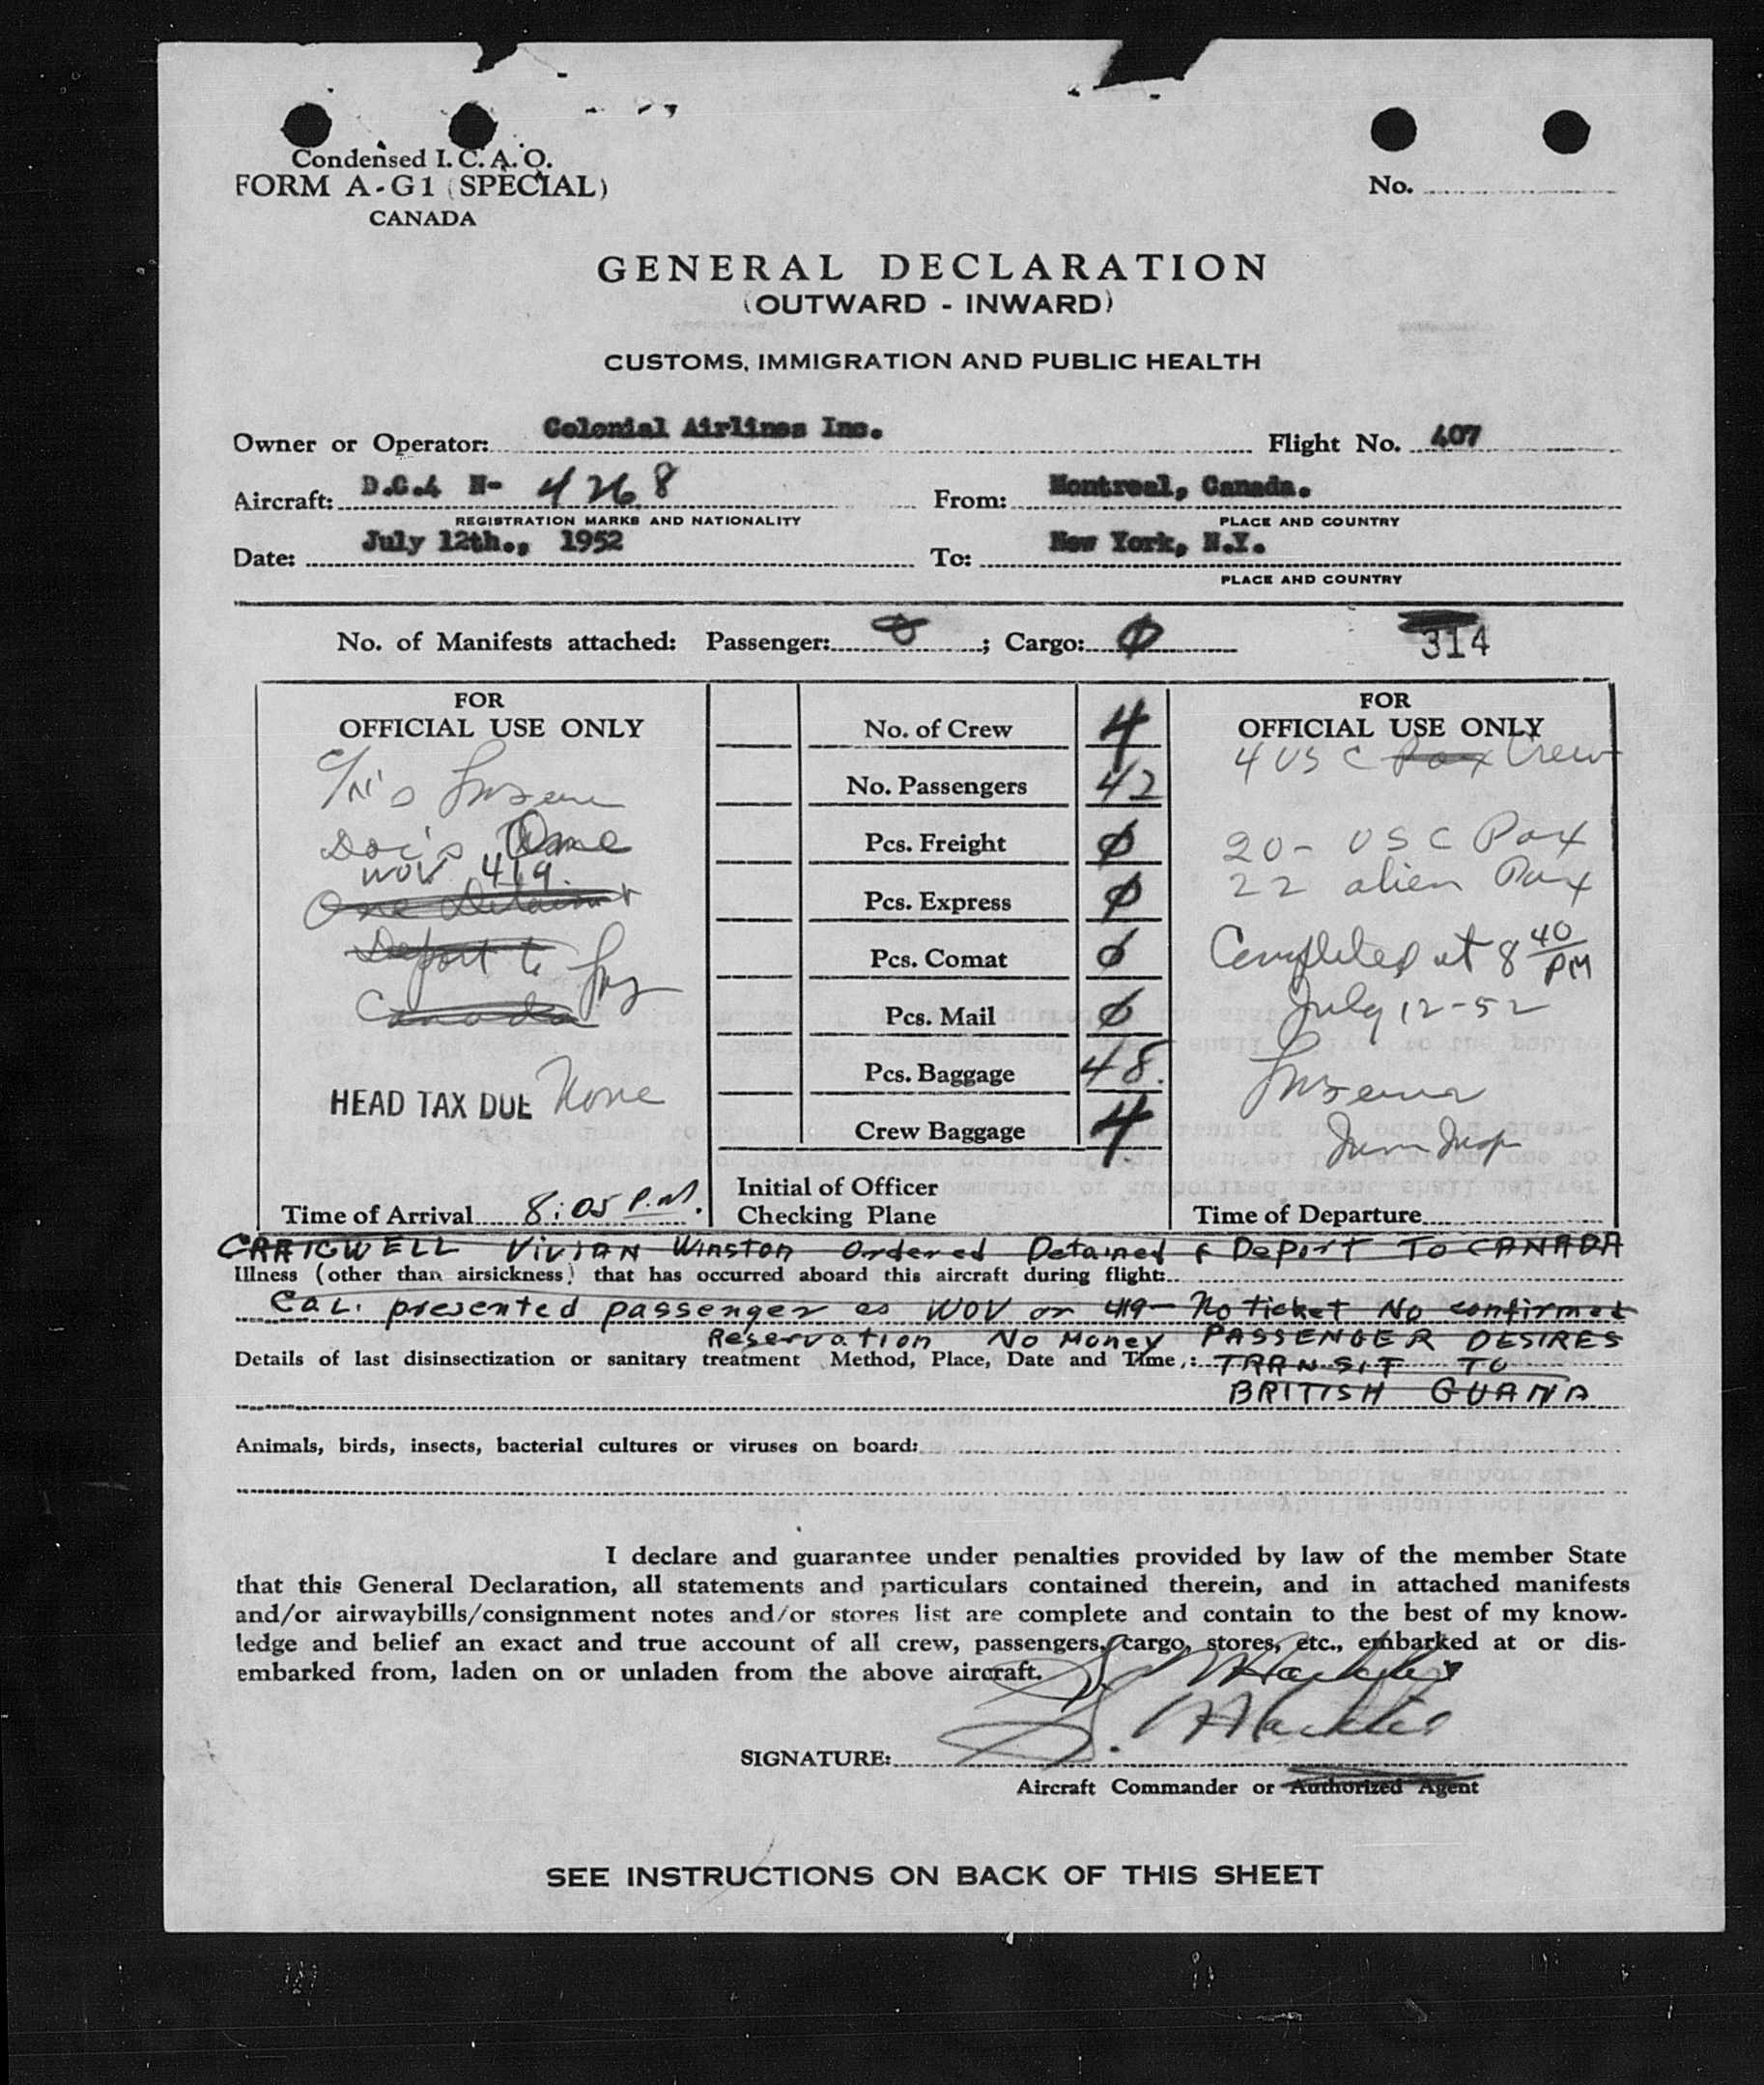 Condensed I. C. A. O.
FORM A-G1 (SPECIAL)
CANADA
No.
GENERAL DECLARATION
(OUTWARD - INWARD)
CUSTOMS, IMMIGRATION AND PUBLIC HEALTH
Owner or Operator: Colonial Airlines Inc. Flight No. 407
Aircraft: D.C.4 N- 4268 From: Montreal, Canada.
REGISTRATION MARKS AND NATIONALITY PLACE AND COUNTRY
Date: July 12th., 1952 To: New York, N.Y.
PLACE AND COUNTRY
No. of Manifests attached: Passenger: 0; Cargo: 0 314
FOR
OFFICIAL USE ONLY
Doc's One
WOV 419.
One Detained
Deport to
Canada
HEAD TAX DUE None
Time of Arrival 8:05 P.M.
No. of Crew 4
No. Passengers 42
Pcs. Freight 0
Pcs. Express 0
Pcs. Comat 0
Pcs. Mail 0
Pcs. Baggage 48.
Crew Baggage 4
Initial of Officer
Checking Plane
FOR
OFFICIAL USE ONLY
4 US C Pax Crew
20- USC Pax
22 alien Pax
Completed at 8 40 PM
July 12-52
Imm Insp
Time of Departure
CRAIGWELL VIVIAN Winston Ordered Detained & Deport TO CANADA
Illness (other than airsickness) that has occurred aboard this aircraft during flight:
Cal. presented passenger as WOV or 419- No ticket No confirmed
Reservation No Money PASSENGER DESIRES
Details of last disinsectization or sanitary treatment Method, Place, Date and Time,: TRANSIT TO
BRITISH GUANA
Animals, birds, insects, bacterial cultures or viruses on board:
I declare and guarantee under penalties provided by law of the member State
that this General Declaration, all statements and particulars contained therein, and in attached manifests
and/or airwaybills/consignment notes and/or stores list are complete and contain to the best of my know-
ledge and belief an exact and true account of all crew, passengers, cargo, stores, etc., embarked at or dis-
embarked from, laden on or unladen from the above aircraft.
SIGNATURE:
Aircraft Commander or Authorized Agent
SEE INSTRUCTIONS ON BACK OF THIS SHEET